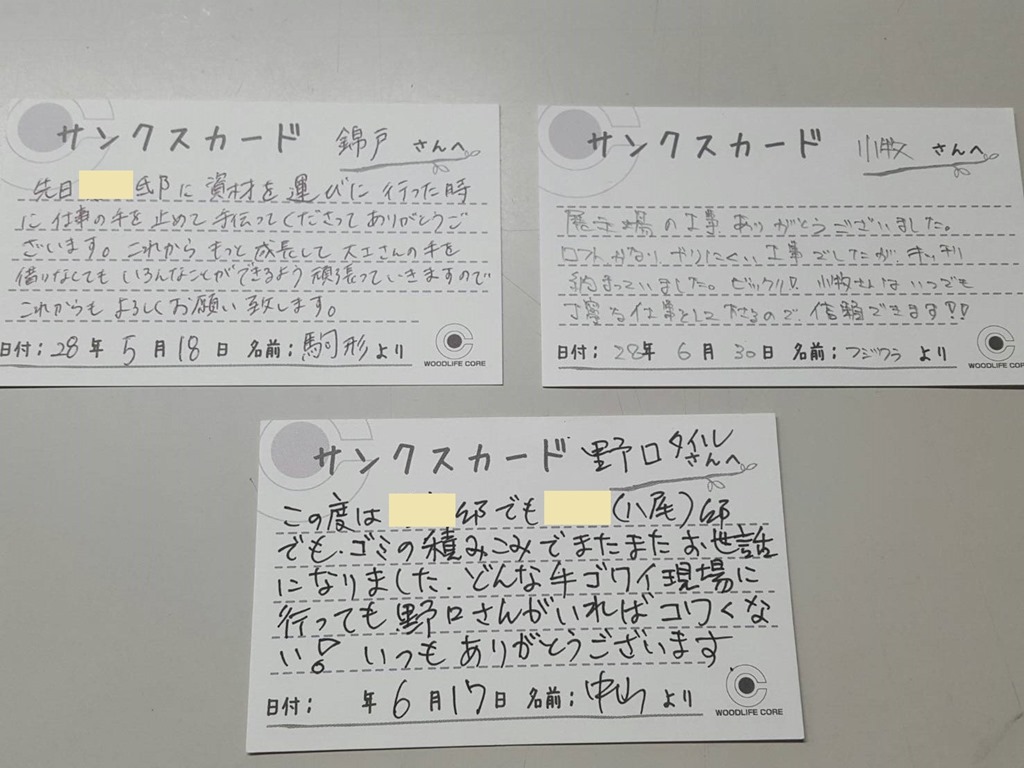 サンクスカード 錦戸 さんへ
先日 邸に資材を運びに行った時
に仕事の手を止めて手伝ってくださってありがとうご
ざいます。これからもっと成長して大工さんの手を
借りなくてもいろんなことができるよう頑張っていきますので
これからもよろしくお願い致します。
日付：28年 5月 18日 名前：駒形より
WOODLIFE CORE
サンクスカード 小牧 さんへ
展示場の工事ありがとうございました。
ロフトかなりやりにくい工事でしたが、キッチリ
納まっていました。ビックリ!! 小牧さんはいつでも
丁寧な仕事をして下さるので、信頼できます!!
日付：28年 6月 30日 名前：フジワラ より
WOODLIFE CORE
サンクスカード 野口タイルさんへ
この度は 邸でも (八尾)邸
でも、ゴミの積みこみでまたまたお世話
になりました。どんな手ゴワイ現場に
行っても野口さんがいればコワくな
い! いつもありがとうございます
日付： 年 6月 17日 名前：中山より
WOODLIFE CORE